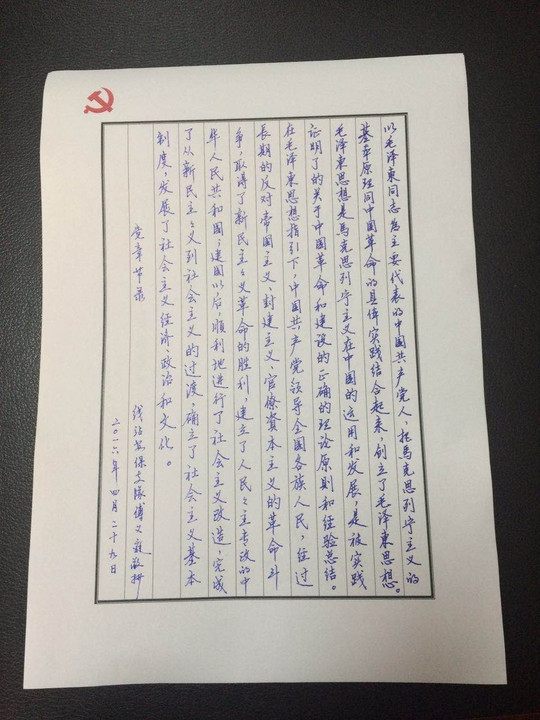 以毛泽東同志为主要代表的中国共产党人，把马克思列宁主义的
基本原理同中国革命的具体实践结合起来，创立了毛泽東思想。
毛泽東思想是馬克思列宁主义在中国的运用和发展，是被实践
证明了的关于中国革命和建设的正确的理论原则和经验总结。
在毛泽東思想指引下，中国共产党领导全国各族人民，经过
長期的反对帝国主义、封建主义、官僚資本主义的革命斗
争，取得了新民主主义革命的胜利，建立了人民民主专政的中
华人民共和国；建国以后，顺利地进行了社会主义改造，完成
了从新民主主义到社会主义的过渡，确立了社会主义基本
制度，发展了社会主义经济、政治和文化。
党章节录
线站安保支隊
二〇一六年四月二十九日